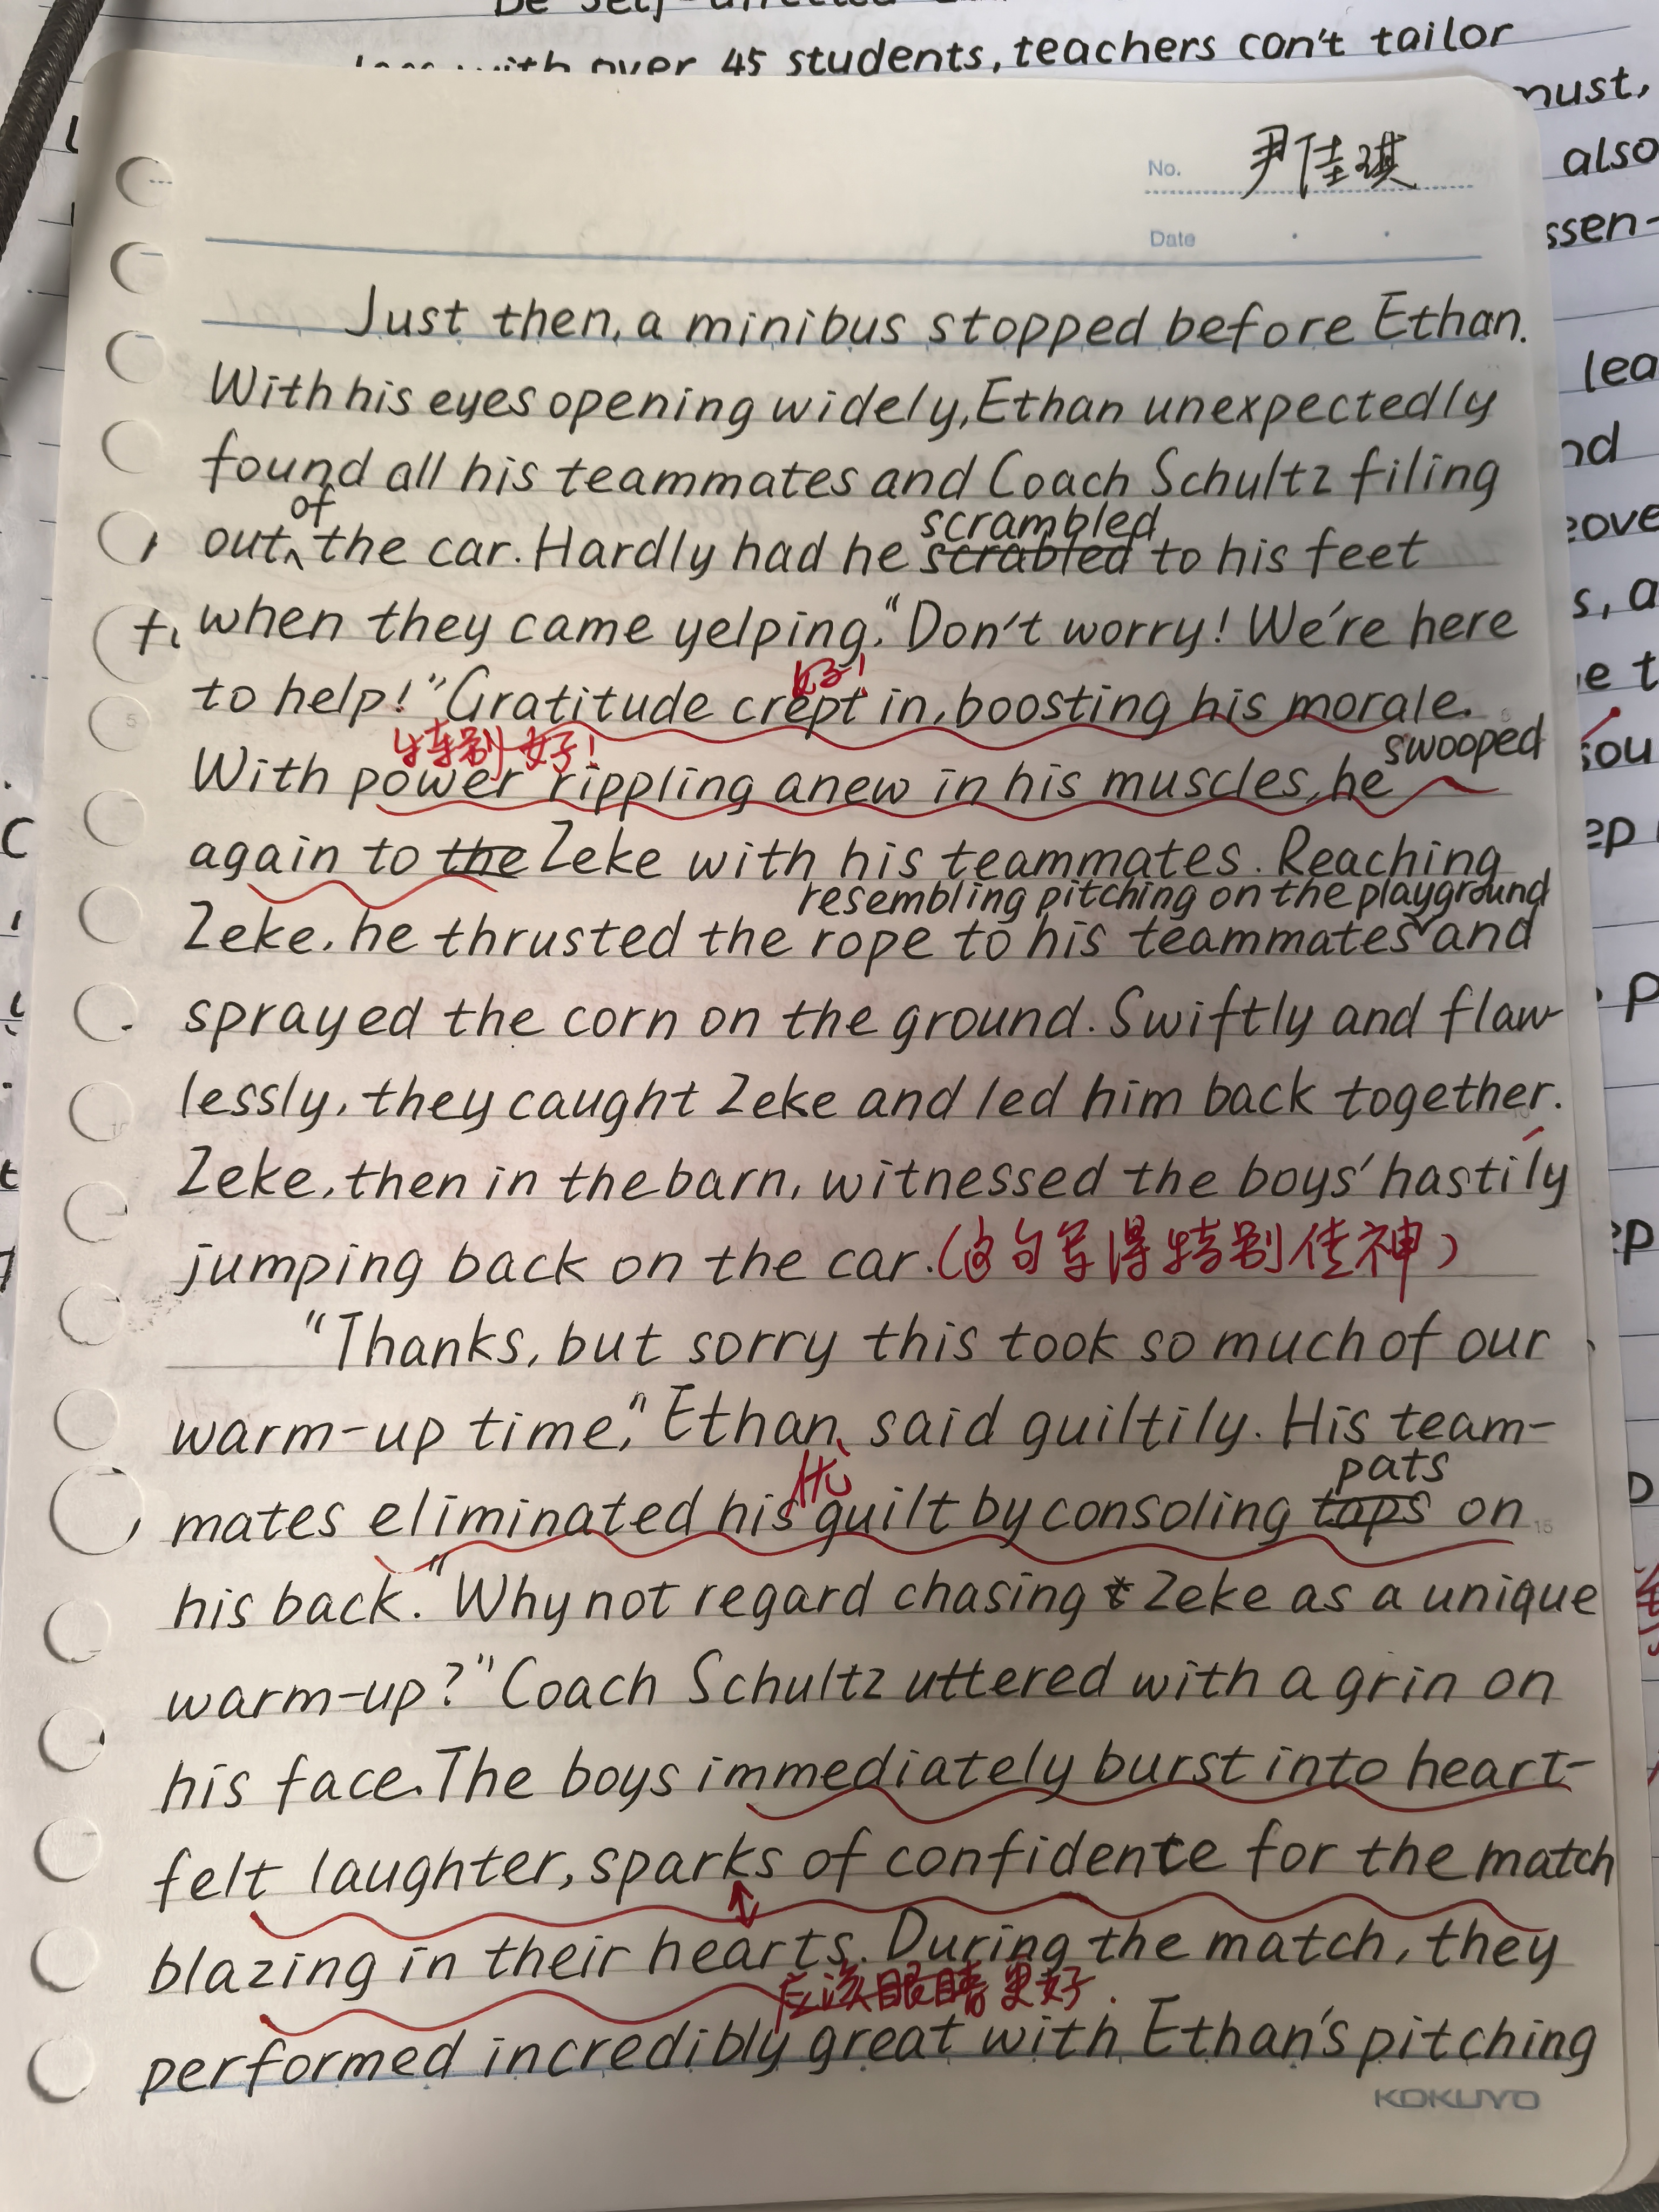 with over 45 students, teachers con't tailor
must,
also
ssen-
lea
nd
s, a
No. 尹佳琪
Date
Just then, a minibus stopped before Ethan.
With his eyes opening widely, Ethan unexpectedly
found all his teammates and Coach Schultz filing
of
scrambled
out the car. Hardly had he scrabled to his feet
when they came yelping, "Don't worry! We're here
好!
to help!" Gratitude crept in, boosting his morale.
特别好!
swooped
With power rippling anew in his muscles, he
again to the Zeke with his teammates. Reaching
resembling pitching on the playground
Zeke, he thrusted the rope to his teammates and
sprayed the corn on the ground. Swiftly and flaw-
lessly, they caught Zeke and led him back together.
Zeke, then in the barn, witnessed the boys' hastily
jumping back on the car. (这句写得特别传神)
"Thanks, but sorry this took so much of our
warm-up time," Ethan said guiltily. His team-
优
pats
mates eliminated his guilt by consoling taps on
his back. "Why not regard chasing Zeke as a unique
warm-up?" Coach Schultz uttered with a grin on
his face. The boys immediately burst into heart-
felt laughter, sparks of confidence for the match
blazing in their hearts. During the match, they
应该眼睛更好
performed incredibly great with Ethan's pitching
KOKUYO